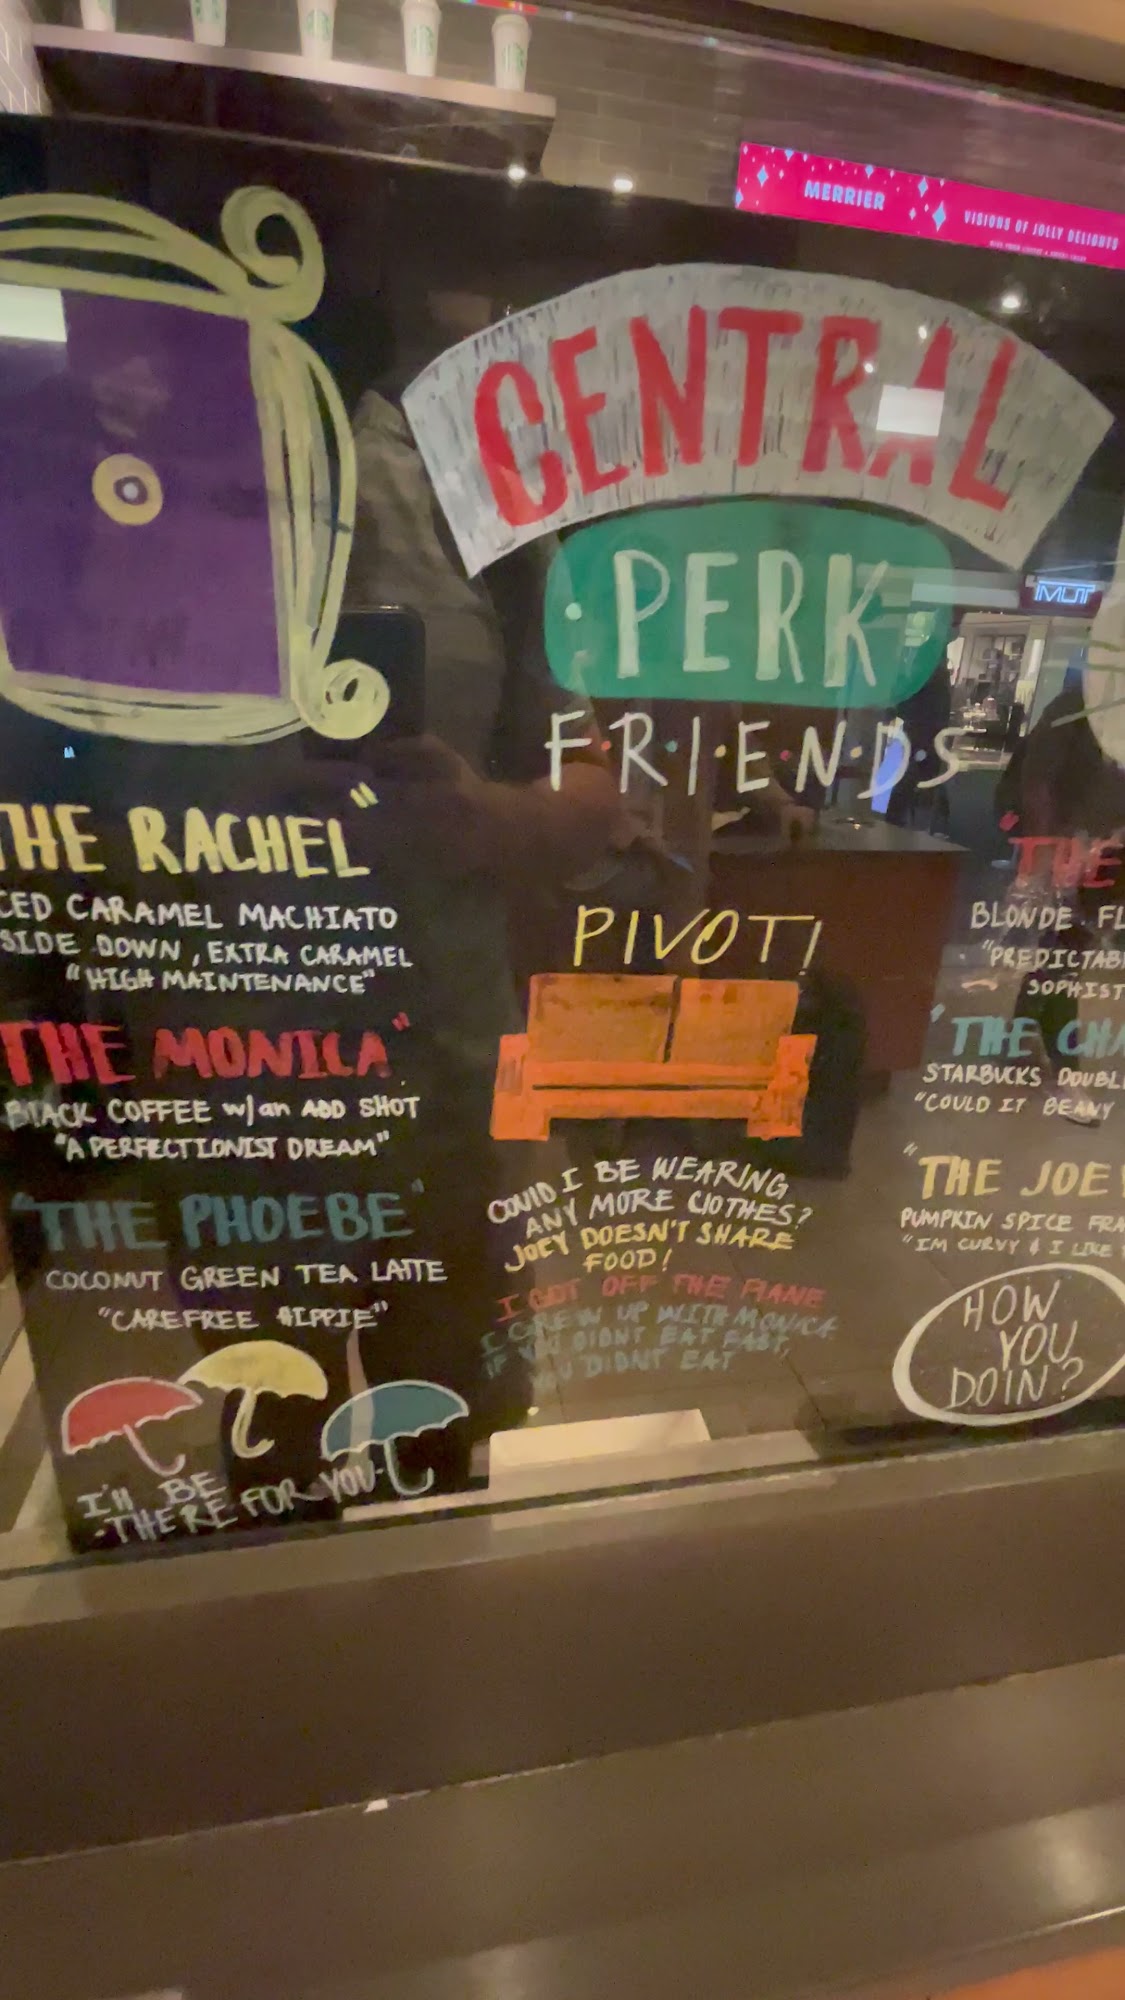 MERRIER
VISIONS OF JOLLY DELIGHTS
CENTRAL
PERK
F·R·I·E·N·D·S
THE RACHEL"
CED CARAMEL MACHIATO
SIDE DOWN, EXTRA CARAMEL
"HIGH MAINTENANCE"
THE MONICA"
BLACK COFFEE w/an ADD SHOT
"A PERFECTIONIST DREAM"
"THE PHOEBE"
COCONUT GREEN TEA LATTE
"CAREFREE HIPPIE"
I'll BE
THERE FOR YOU
PIVOT!
COULD I BE WEARING
ANY MORE ClOTHES?
JOEY DOESN'T SHARE
FOOD!
I GOT OFF THE PLANE
I GREW UP WITH MONICA
IF YOU DIDNT EAT FAST,
YOU DIDNT EAT
"THE
BLONDE FL
"PREDICTAB
SOPHIST
"THE CHA
STARBUCKS DOUBL
"COULD IT BEANY
"THE JOEY
PUMPKIN SPICE FRA
"IM CURVY & I LIKE
HOW
YOU
DOIN?